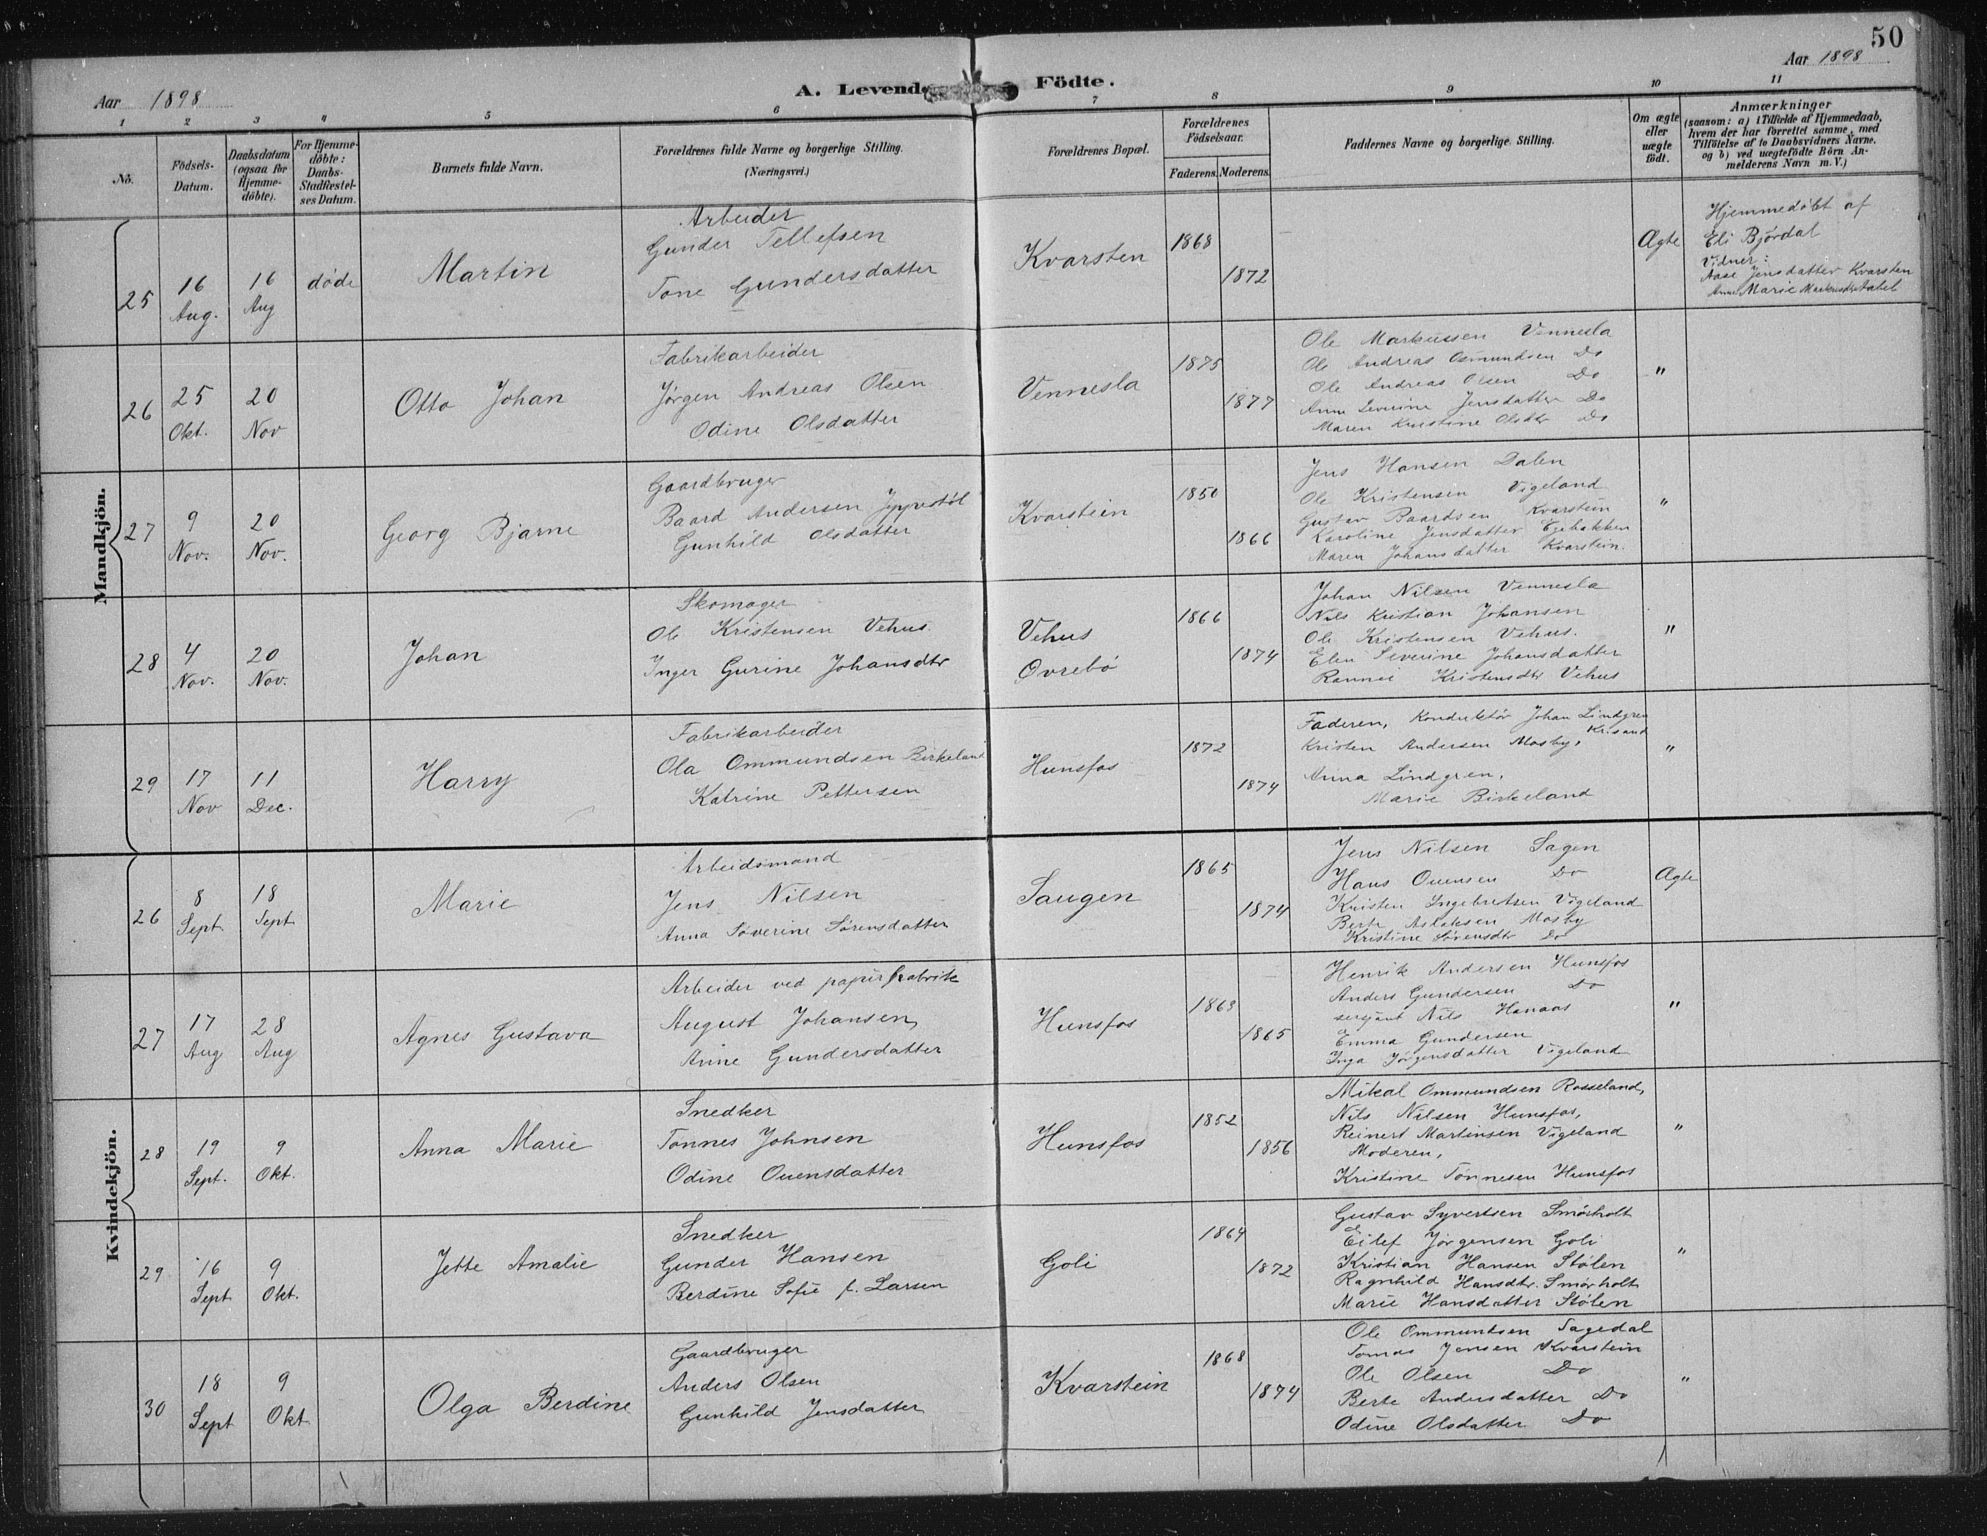 50
Aar 1898
A. Levende Födte.
Aar 1898
1 2 3 4 5 6 7 8 9 10 11
No.
Födsels-Datum.
Daabsdatum (ogsaa for Hjemme-döbte).
For Hjemme-döbte: Daabs-Stadfæstel-ses Datum.
Barnets fulde Navn.
Forældrenes fulde Navne og borgerlige Stilling.
(Næringsvei.)
Forældrenes Bopæl.
Forældrenes Födselsaar.
Faderens. Moderens.
Faddernes Navne og borgerlige Stilling.
Om ægte eller uægte födt.
Anmærkninger
(saasom: a) i Tilfælde af Hjemmedaab,
hvem der har forrettet samme, med
Tilföielse af to Daabsvidners Navne,
og b) ved uægtefödte Börn An-
melderens Navn m. V.)
Mandkjön.
25
16 Aug.
16 Aug
döde
Martin
Arbeider
Gunder Tellefsen
Tone Gundersdatter
Kvarsten
1868
1872
Ægte
Hjemmedöbt af
Eli Björdal
Vidner:
Aase Jensdatter Kvarsten
Anne Marie
26
25 Okt.
20 Nov
Otto Johan
Fabrikarbeider
Jørgen Andreas Olsen
Odine Olsdatter
Vennesla
1875
1877
Ole Markussen Vennesla
Ole Andreas Osmundsen Do
Ole Andreas Olsen Do
Anne Severine Jensdatter Do
Maren Kristine Olsdtr Do
"
27
9 Nov.
20 Nov.
Georg Bjarne
Gaardbruger
Baard Andersen
Gunhild Olsdatter
Kvarstein
1850
1866
Jens Hansen Dalen
Ole Kristensen Vigeland
Gustav Baardsen Kvarstein
Karoline Jensdatter Egebakken
Maren Johansdatter Kvarstein.
"
28
4 Nov.
20 Nov.
Johan
Skomager
Ole Kristensen Vehus.
Inger Gurine Johansdtr
Vehus
Ovrebö
1866
1874
Johan Nilsen Vennesla
Nils Kristian Johansen
Ole Kristensen Vehus.
Elen Severine Johansdatter
Rannei Kristensdtr Vehus
"
29
17 Nov
11 Dec.
Harry
Fabrikarbeider
Ola Ommundsen Birkeland
Katrine Pettersen
Hunsfos
1872
1874
Faderen, Konduktör Johan Lindgren
Krisand
Kristen Andersen Mosby,
Anna Lindgren,
Marie Birkeland
"
Kvindekjön.
26
8 Sept.
18 Sept
Marie
Arbeidsmand
Jens Nilsen
Anna Severine Sörensdatter
Saugen
1865
1874
Jens Nilsen Sagen
Hans Ouensen Do
Kristen Ingebretsen Vigeland
Berte Aslaksen Mosby
Kristine Sörensdtr Do
Ægte
27
17 Aug
28 Aug
Agnes Gustava
Arbeider ved papirfabrik
August Johansen,
Anne Gundersdatter
Hunsfos
1863
1865
Henrik Andersen Hunsfos
Anders Gundersen Do
sergjant Nils Hanaas
Emma Gundersen
Inga Jörgensdatter Vigeland
"
28
19 Sept.
9 Okt.
Anna Marie
Snedker
Tönnes Johnsen
Odine Ouensdatter
Hunsfos
1852
1856
Mikal Ommundsen Rosseland,
Nils Nilsen Hunsfos,
Reinert Martinsen Vigeland
Moderen,
Kristine Tönnesen Hunsfos
"
29
16 Sept
9 Okt.
Jette Amalie
Snedker
Gunder Hansen
Berdine Sofie f. Larsen
Goli
1864
1872
Gustav Syvertsen Smörholt
Eilef Jörgensen Goli
Kristian Hansen Stölen
Ragnhild Hansdtr. Smörholt
Marie Hansdatter Stölen
"
30
18 Sept
9 Okt
Olga Berdine
Gaardbruger
Anders Olsen
Gunhild Jensdatter
Kvarstein
1868
1874
Ole Ommundsen Fagedal
Tomas Jensen Kvarstein
Ole Olsen Do
Berte Andersdatter Do
Odine Olsdatter Do
"